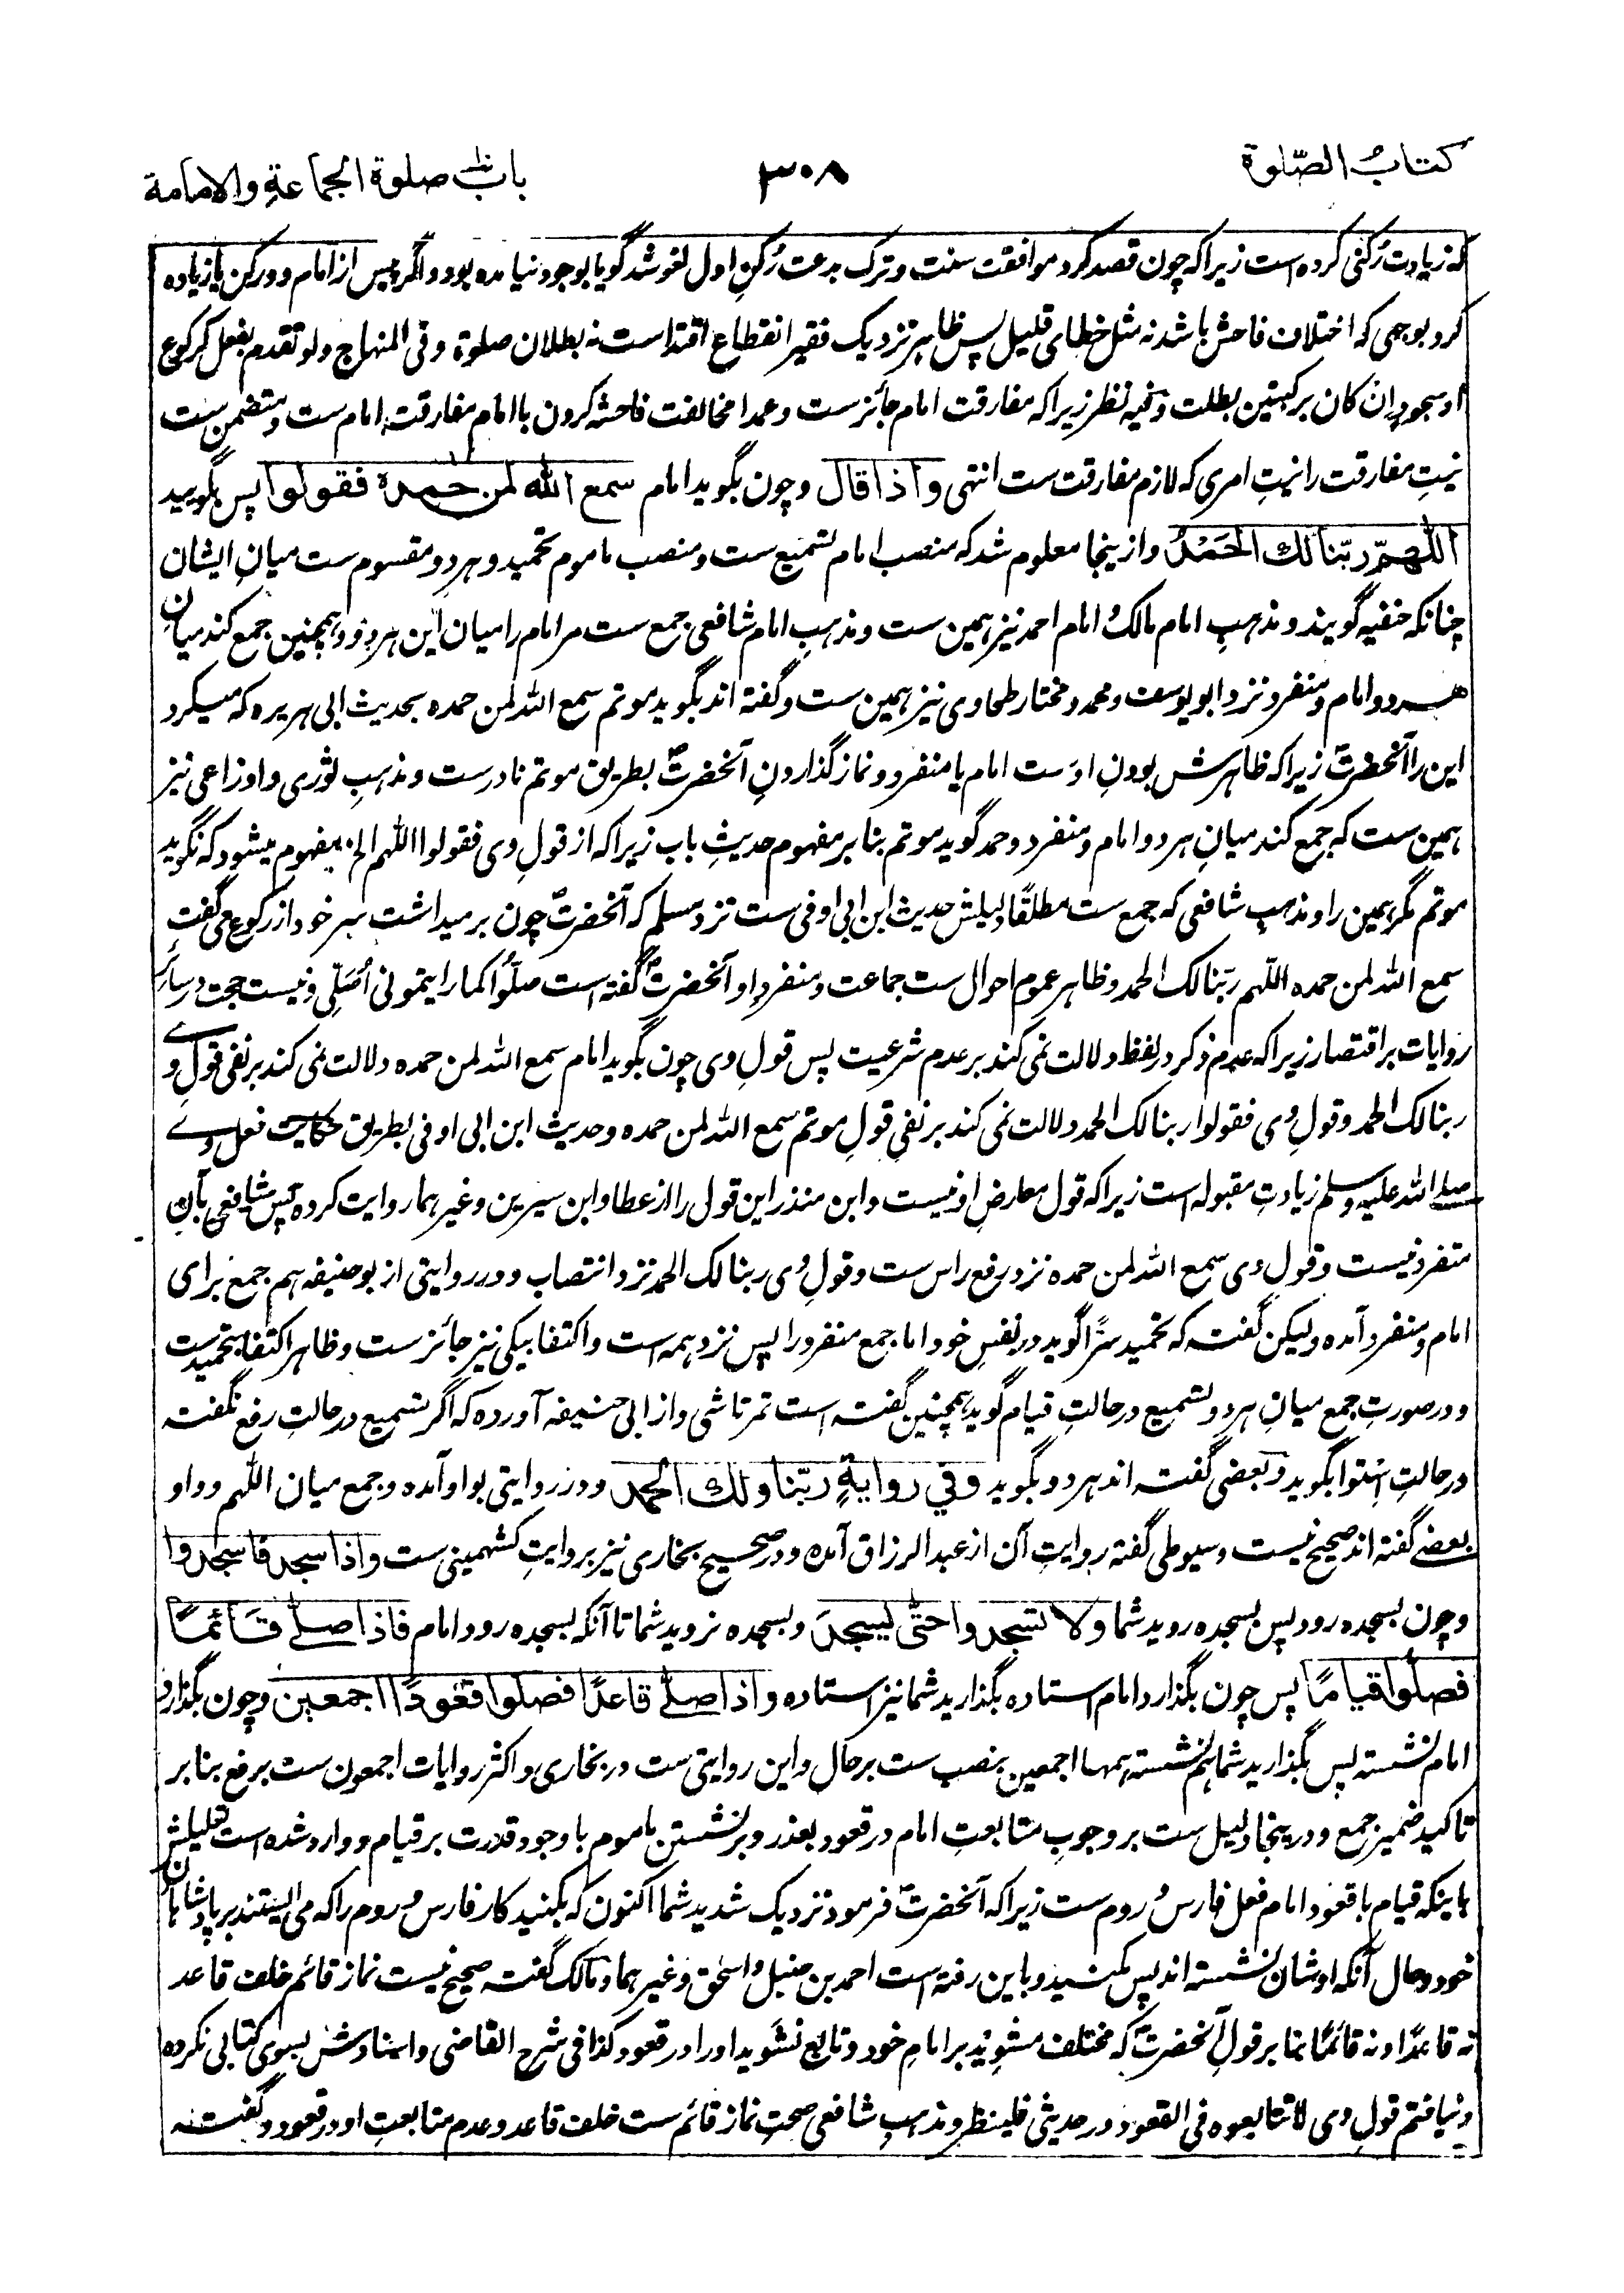 کتابُ الصّلوة
۳۰۸
باب صلوة الجماعةِ والامامة
که زیادت رُکنی کرده است زیراکه چون قصد کرد موافقت سنت و ترک بدعت رُکنِ اول لغو شد گویا بوجود نیامده بود و اگر پس از امام دو رکن یا زیاده
کرد بوجهی که اختلاف فاحش باشد نه مثل خطای قلیل پس ظاهر نزدیک فقیر انقطاع اقتداست نه بطلان صلوة و فی المنهاج ولو تقدم بفعل کرکوع
او سجود اِن کان برکنین بطلت و فیه نظر زیراکه مفارقت امام جائزست و عمدا مخالفت فاحشه کردن با امام مفارقتِ امام ست و متضمن ست
نیتِ مفارقت را نیتِ امری که لازم مفارقت ست انتهی و اذا قال و چون بگوید امام سمع الله لمن حمده فقولوا پس بگویید
اللّهمّ ربّنا لك الحَمْدُ و ازینجا معلوم شد که منصب امام تسمیع ست و منصب ماموم تحمید و هر دو مقسوم ست میانِ ایشان
چنانکه حنفیه گویند و مذهبِ امام مالک و امام احمد نیز همین ست و مذهبِ امام شافعی جمع ست مر امام را میان این هر دو و همچنین جمع کند میانِ
هردو امام و منفرد نزد ابو یوسف و محمد و مختار طحاوی نیز همین ست و گفته اند بگوید موتم سمع الله لمن حمده بحدیث ابی هریره که میکرد
این را آنحضرتؐ زیراکه ظاهرش بودنِ اوست امام یا منفرد و نماز گذاردنِ آنحضرتؐ بطریق موتم نادرست و مذهبِ ثوری و اوزاعی نیز
همین ست که جمع کند میانِ هر دو امام و منفرد و حمد گوید موتم بنا بر مفهوم حدیثِ باب زیراکه از قولِ وی فقولوا اللهم الخ مفهوم میشود که نگوید
موتم مگر همین را و مذهب شافعی که جمع ست مطلقًا دلیلش حدیث ابن ابی اوفی ست نزد مسلم که آنحضرتؐ چون برمیداشت سر خود از رکوع می گفت
سمع الله لمن حمده اللّهم ربّنا لک الحمد و ظاهر عموم احوال ست جماعت و منفرد و آنحضرتؐ گفته است صلّوا کما رایتمونی اُصَلّی و نیست حجت در سائر
روایات بر اقتصار زیراکه عدم ذکر در لفظ دلالت نمی کند بر عدم شرعیت پس قولِ وی چون بگوید امام سمع الله لمن حمده دلالت نمی کند بر نفی قولِ وے
ربنا لک الحمد و قولِ وی فقولوا ربنا لک الحمد دلالت نمی کند بر نفیِ قولِ موتم سمع الله لمن حمده و حدیث ابن ابی اوفی بطریق حکایت فعل وے
صلے الله علیه وسلم زیادتِ مقبوله است زیراکه قول معارضِ او نیست و ابن منذر این قول را از عطا و ابن سیرین و غیر هما روایت کرده پس شافعی بآن
متفرد نیست و قولِ وی سمع الله لمن حمده نزد رفع راس ست و قولِ وی ربنا لک الحمد نزد انتصاب و در روایتی از بو حنیفه هم جمع برای
امام و منفرد آمده ولیکن گفت که تحمید سرًّا گوید در نفسِ خود اما جمع منفرد را پس نزد همه است و اکتفا بیکی نیز جائزست و ظاهر اکتفا بتحمیدست
و در صورتِ جمع میانِ هر دو تسمیع در حالتِ قیام گوید همچنین گفته است تمرتاشی و از ابی حنیفه آورده که اگر تسمیع در حالتِ رفع نگفته
در حالتِ اِستوا بگوید و بعضی گفته اند هر دو بگوید و فی روایةٍ ربّنا ولك الحمد و در روایتی بواو آمده و جمع میان اللهم و واو
بعضے گفته اند صحیح نیست و سیوطی گفته روایتِ آن از عبدالرزاق آمده و در صحیح بخاری نیز بروایتِ کشهمینی ست و اذا سجد فاسجدوا
و چون بسجده رود پس بسجده روید شما ولا تسجدوا حتّٰی یسجدَ و بسجده نروید شما تا آنکه بسجده رود امام فاذا صلّے قَائمًا
فصلّوا قیامًا پس چون بگذارد امام استاده بگذارید شما نیز استاده و اذا صلّے قاعدًا فصلوا قعودًا اجمعین و چون بگذارد
امام نشسته پس بگذارید شما هم نشسته همها اجمعین بنصب ست بر حال و این روایتی ست در بخاری و اکثر روایات اجمعون ست برفع بنا بر
تاکید ضمیر جمع و درینجا دلیل ست بر وجوبِ متابعتِ امام در قعود بعذر و بر نشستن ماموم با وجود قدرت بر قیام و وارد شده است تعلیلش
باینکه قیام با قعود امام فعل فارس و روم ست زیراکه آنحضرتؐ فرمود نزدیک شدید شما اکنون که بکنید کار فارس و روم را که می ایستند بر پادشاهان
خود و حال آنکه اوشان نشسته اند پس مکنید و باین رفته است احمد بن حنبل و اسحٰق و غیر هما و مالک گفته صحیح نیست نماز قائم خلف قاعد
نه قاعدًا و نه قائمًا بنا بر قولِ آنحضرتؐ که مختلف مشوید بر امامِ خود و تابع نشوید او را در قعود کذا فی شرح القاضی و اسنادش بسوی کتابی نکرده
و نیافتم قولِ وی لا تتابعوه فی القعود در حدیثی فلینظر و مذهبِ شافعی صحتِ نماز قائم ست خلف قاعد و عدم متابعتِ او در قعود و گفت نه